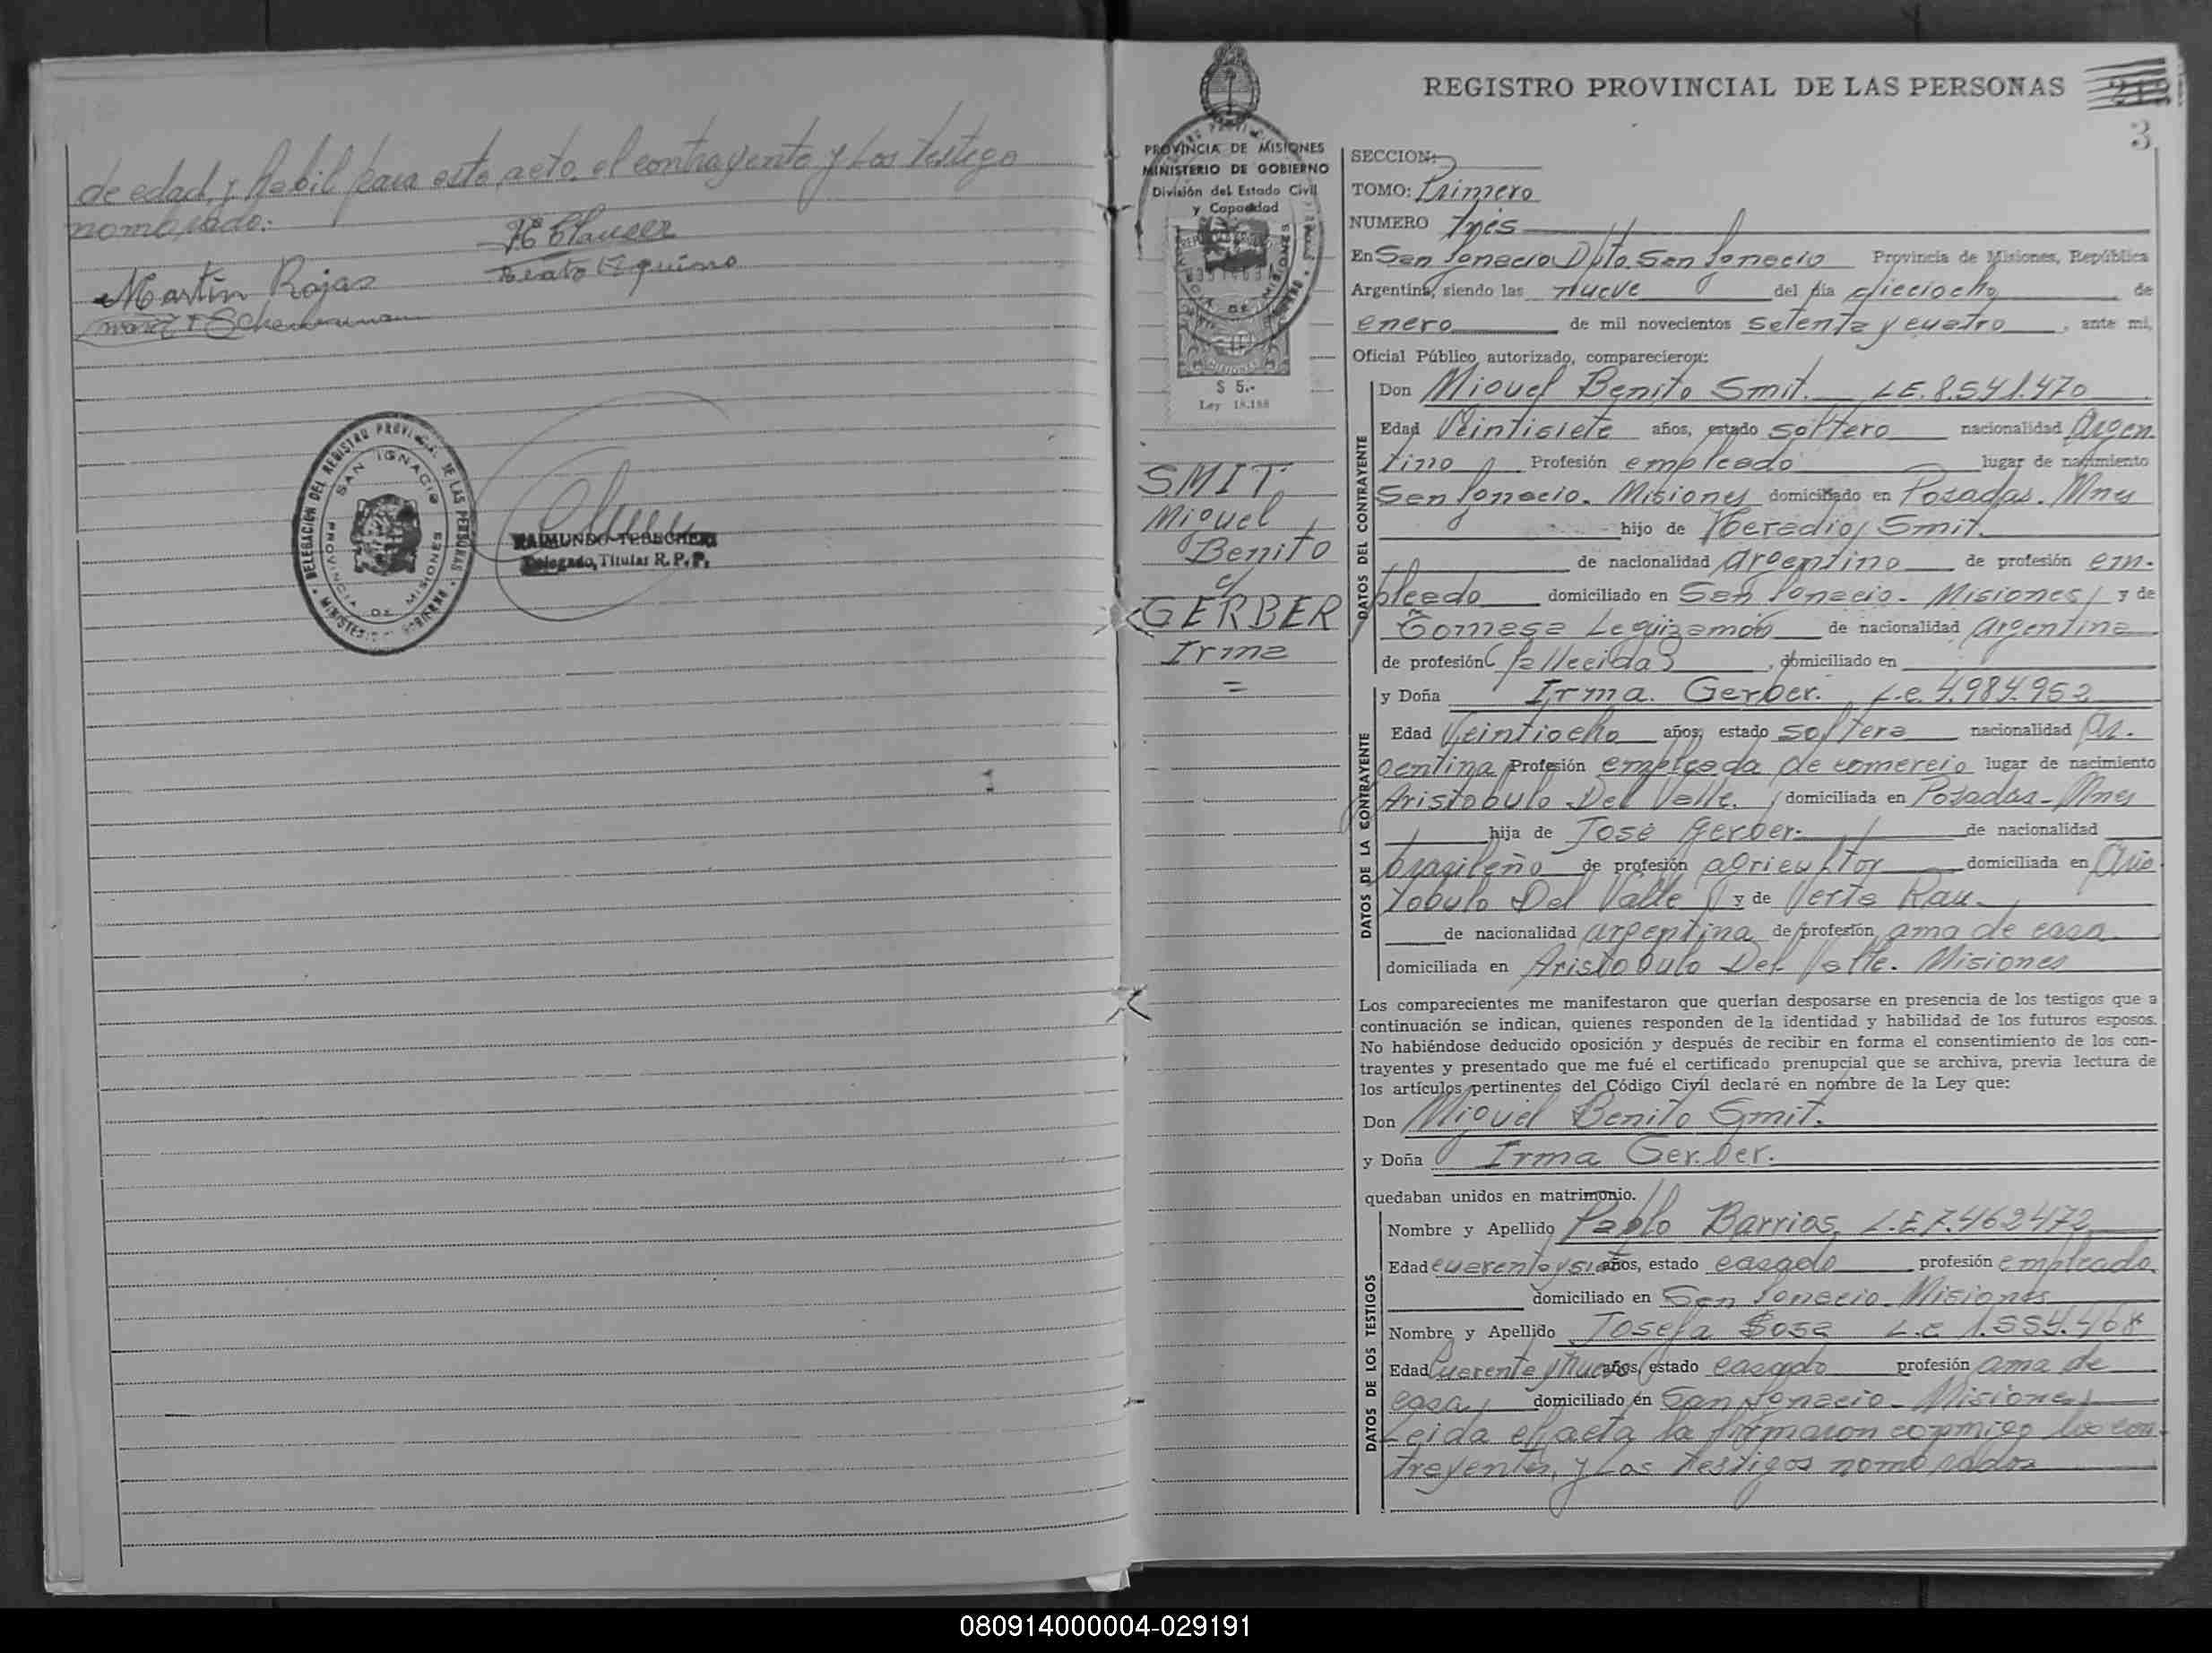 de edad, y habil para este acto, el contrayente y los testigo
nombrado.
H Clauser
Martín Rojas
Beato Aquino
DELEGACION DEL REGISTRO PROVINCIAL DE LAS PERSONAS
SAN IGNACIO
PROVINCIA DE MISIONES
MINISTERIO DE GOBIERNO
RAIMUNDO TEBECHERI
Delegado Titular R.P.P.
PROVINCIA DE MISIONES
MINISTERIO DE GOBIERNO
División del Estado Civil
y Capacidad
$ 5.-
Ley 18.188
SMIT
Miguel
Benito
c/
GERBER
Irma
=
REGISTRO PROVINCIAL DE LAS PERSONAS
3
SECCION:
TOMO: Primero
NUMERO Tres
En San Ignacio Dpto. San Ignacio Provincia de Misiones, República
Argentina, siendo las nueve del día dieciocho de
enero de mil novecientos setenta y cuatro, ante mi,
Oficial Público autorizado, comparecieron:
DATOS DEL CONTRAYENTE
Don Miguel Benito Smit. L.E. 8.541.470
Edad Veintisiete años, estado soltero nacionalidad Argen-
tino Profesión empleado lugar de nacimiento
San Ignacio. Misiones domiciliado en Posadas. Mnes
hijo de Heredio Smit.
de nacionalidad argentino de profesión em-
pleado domiciliado en San Ignacio - Misiones y de
Tomasa Leguizamón de nacionalidad argentina
de profesión (fallecida), domiciliado en
DATOS DE LA CONTRAYENTE
y Doña Irma Gerber. L.C. 4.984.952
Edad Veintiocho años, estado soltera nacionalidad Ar-
gentina Profesión empleada de comercio lugar de nacimiento
Aristobulo Del Valle. domiciliada en Posadas - Mnes
hija de José Gerber. de nacionalidad
brasileño de profesión agricultor domiciliada en Aris-
tobulo Del Valle y de Verta Rau.
de nacionalidad argentina de profesión ama de casa
domiciliada en Aristobulo Del Valle. Misiones
Los comparecientes me manifestaron que querían desposarse en presencia de los testigos que a
continuación se indican, quienes responden de la identidad y habilidad de los futuros esposos.
No habiéndose deducido oposición y después de recibir en forma el consentimiento de los con-
trayentes y presentado que me fué el certificado prenupcial que se archiva, previa lectura de
los artículos pertinentes del Código Civil declaré en nombre de la Ley que:
Don Miguel Benito Smit.
y Doña Irma Gerber.
quedaban unidos en matrimonio.
DATOS DE LOS TESTIGOS
Nombre y Apellido Pablo Barrios L.E 7.462472
Edad cuarenta y siete años, estado casado profesión empleado
domiciliado en San Ignacio - Misiones
Nombre y Apellido Josefa Sosa L.C 1.554.468
Edad cuarenta y nueve años, estado casada profesión ama de
casa domiciliado en San Ignacio - Misiones
Leida el acta la firmaron conmigo los con-
trayentes, y los testigos nombrados
080914000004-029191